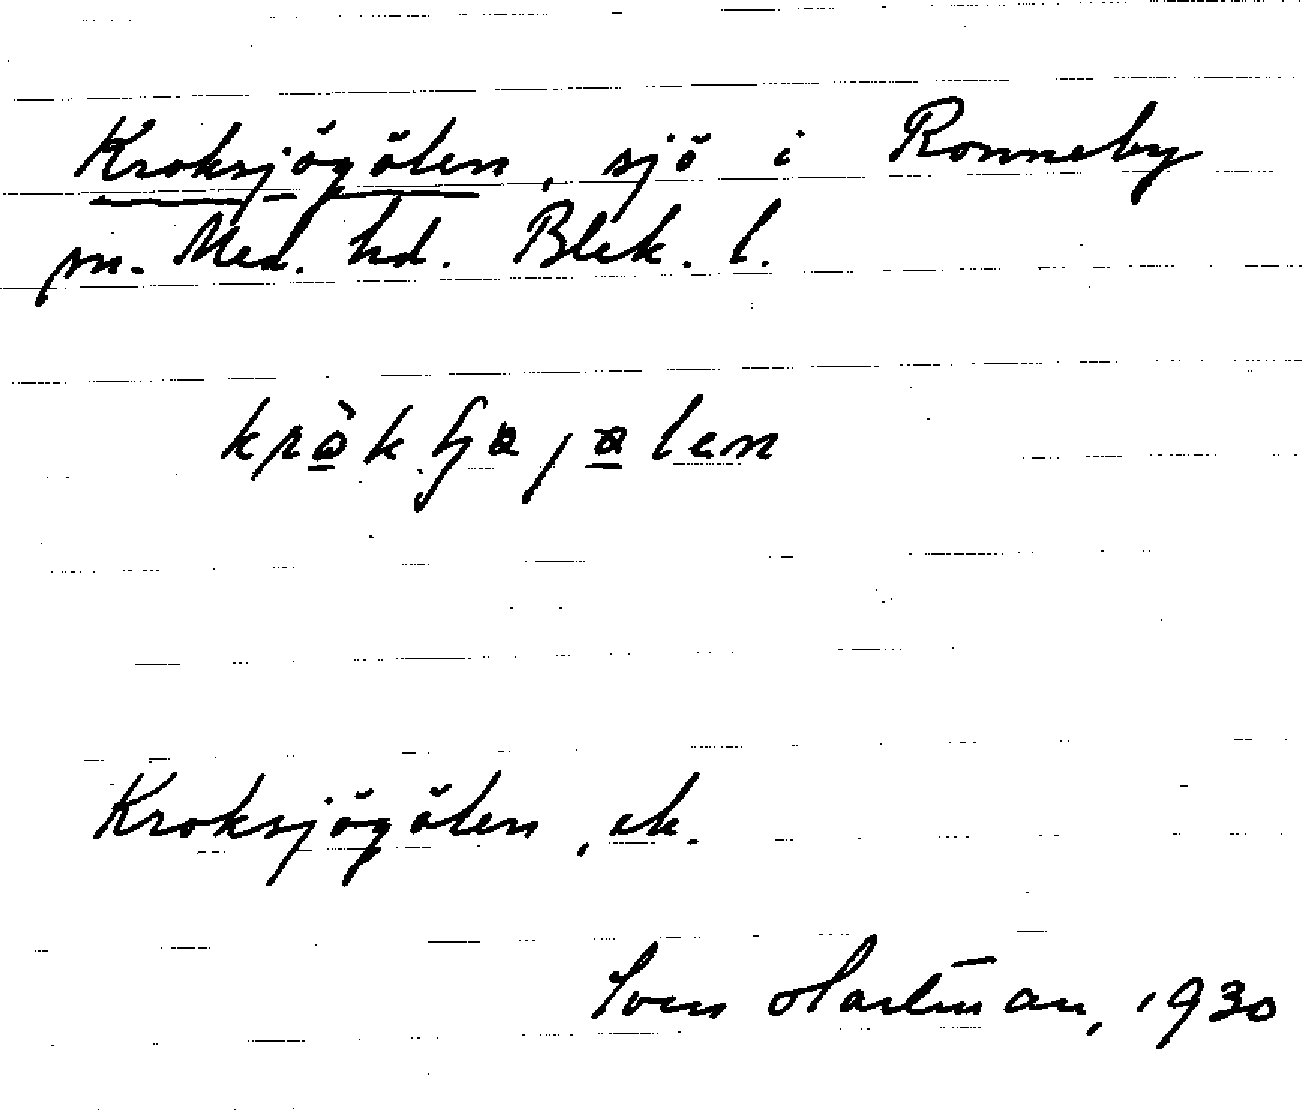 Kroksjögölen, sjö i Ronneby
sn. Med. hd. Blek. l.
Kroksjögölen, ek.
Sven Hartman, 1930